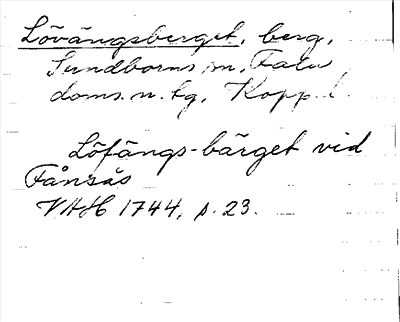 Lövängsberget, berg,
Sundborns sn, Falu
doms. n. tg, Kopp. l.
Löfängs-bärget vid
Fånsås
VAH 1744, p. 23.